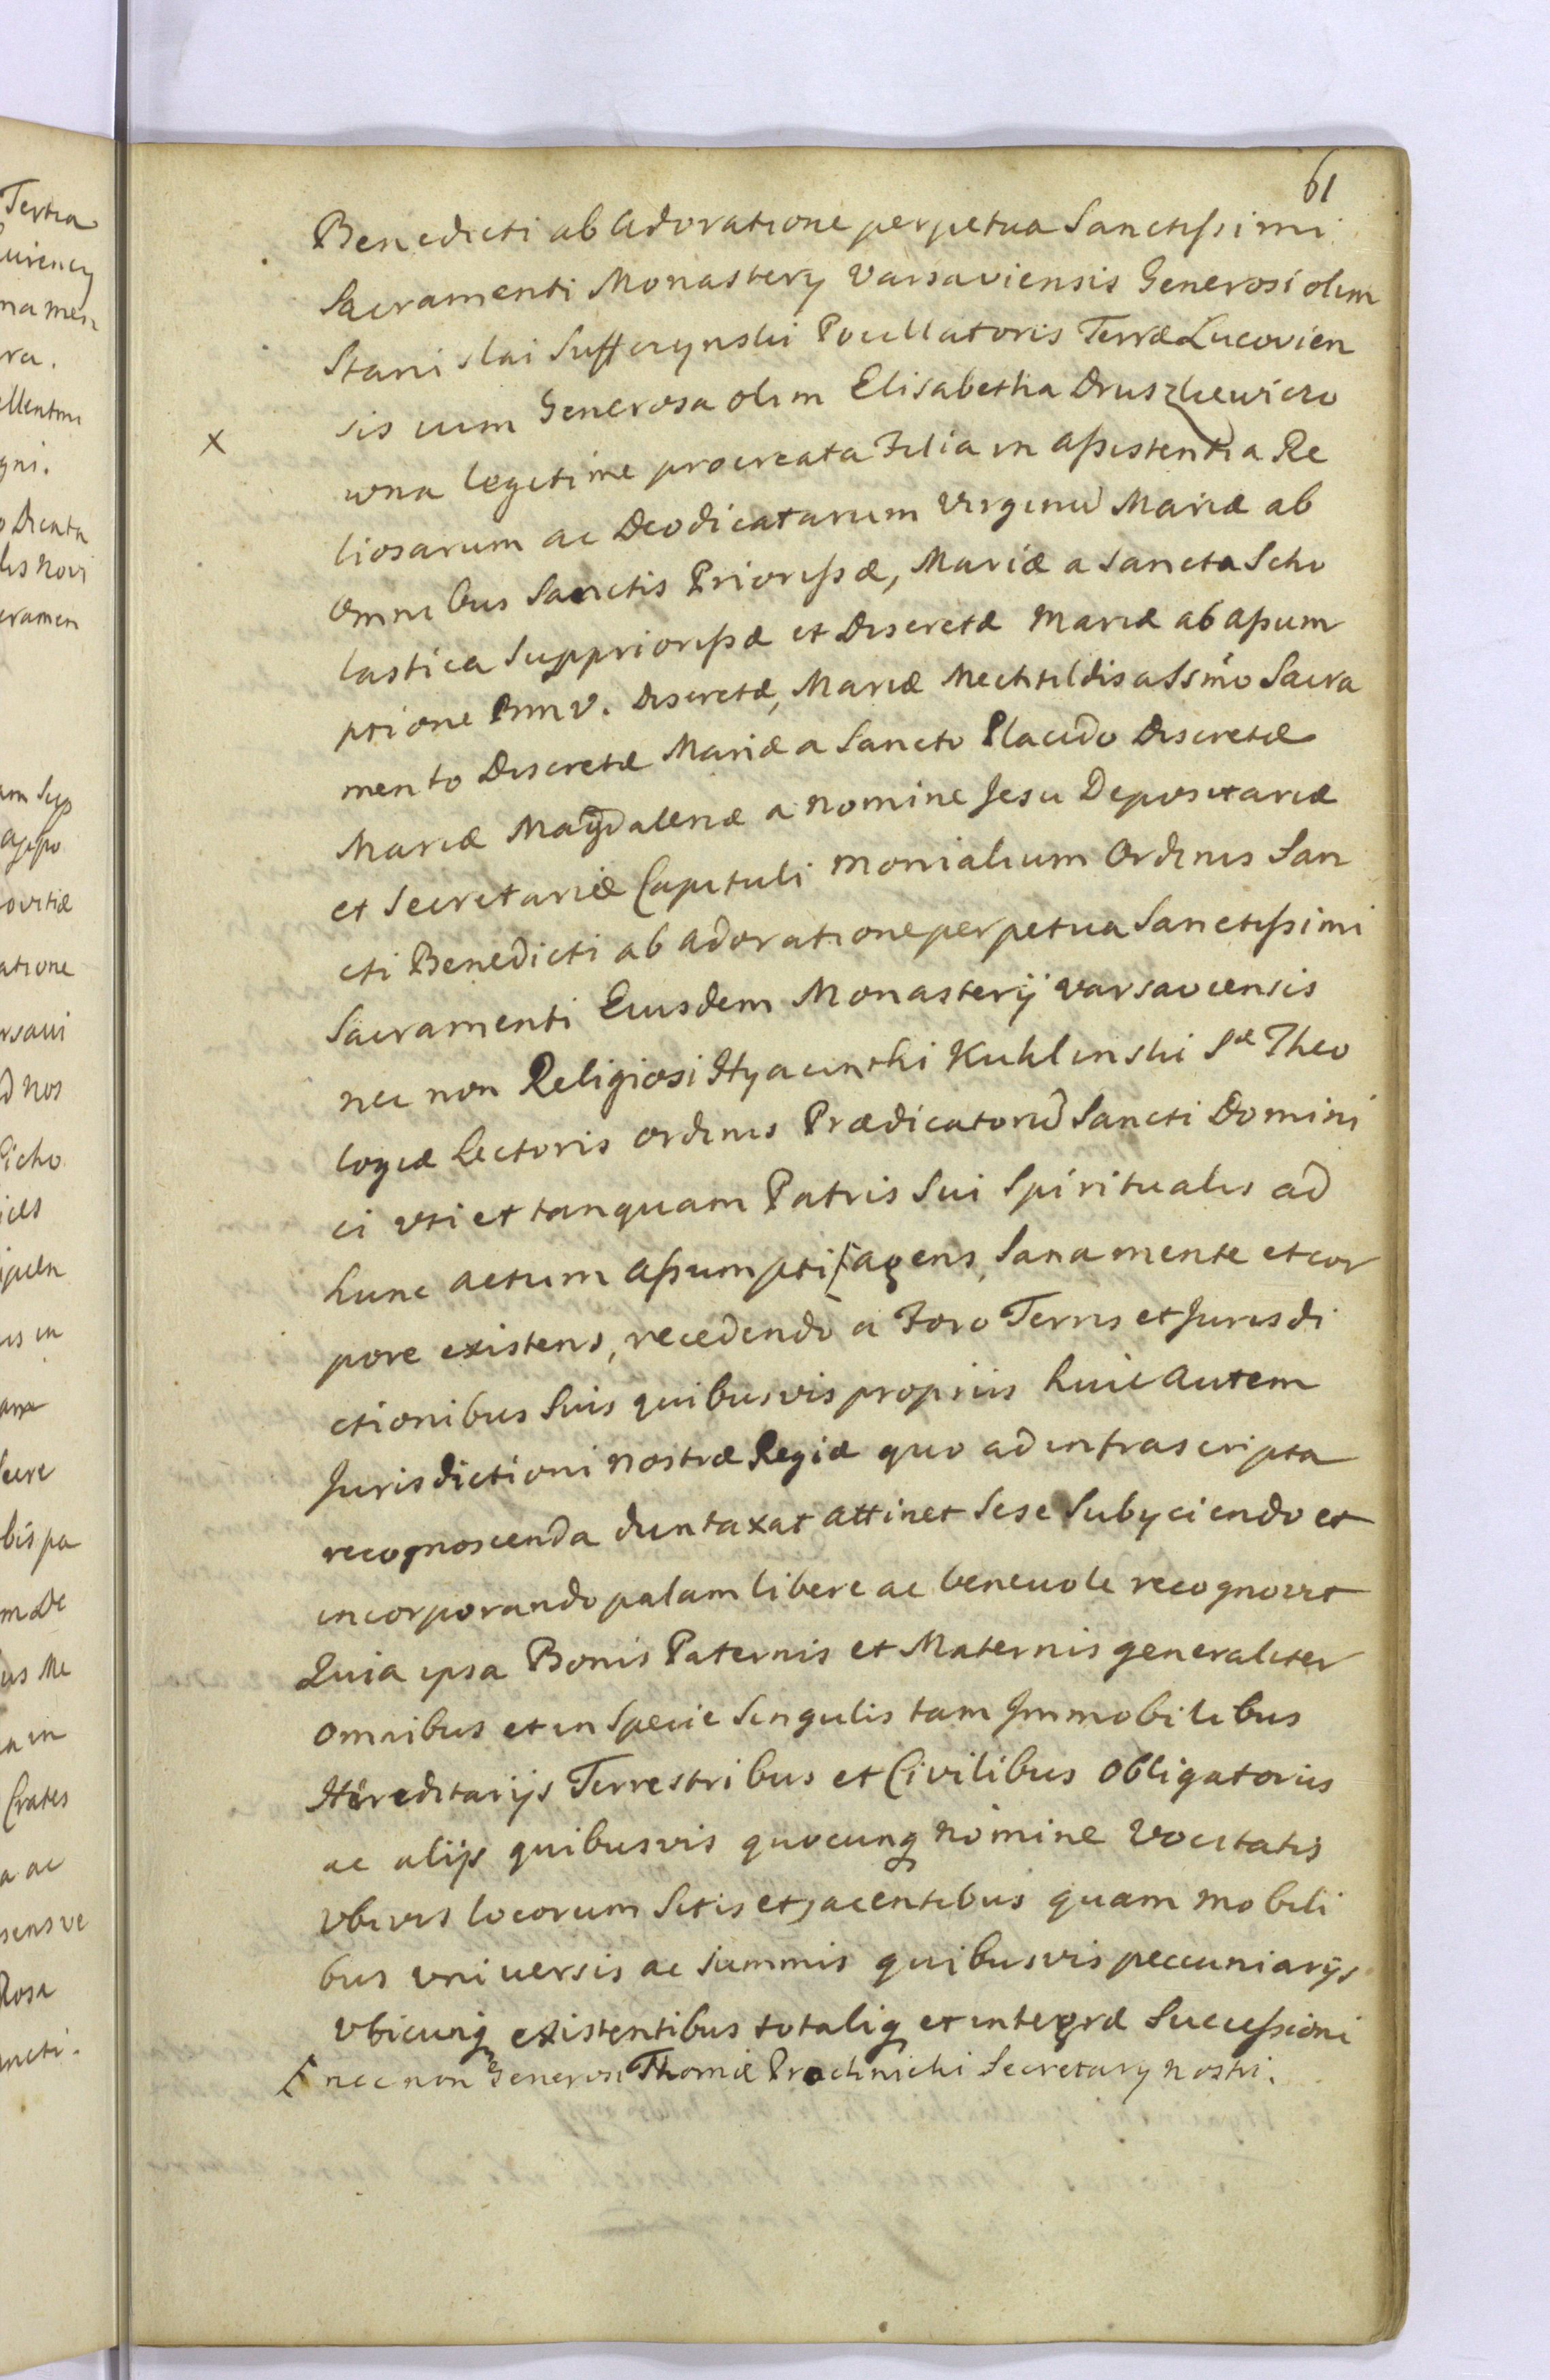 61
Benedicti ab Adoratione perpetua Sanctissimi
Sacramenti Monastery Varsaviensis Generosi olim
Stanislai Suffczynski Pocillatoris Terræ Lucovien
sis cum Generosa olim Elisabetha Druszkiewiczo
x
wna legitime procreata Filia in assistentia Re
liosarum ac Deodicatarum Virginū Mariæ ab
Omnibus Sanctis Priorissæ, Mariæ a Sancta Scho
lastica Suppriorissæ et Discretæ Mariæ ab assum
ptione Bmv. Discretæ, Mariæ Mechtildis a SSmo Sacra
mento Discretæ Mariæ a Sancto Placido Discretæ
Mariæ Magdalenæ a Nomine Jesu Depositariæ
et Secretariæ Capituli Monialium Ordinis San
cti Benedicti ab adoratione perpetua Sanctissimi
Sacramenti Eiusdem Monasterij Varsaviensis
nec non Religiosi Hyacinthi Kuklinski Sæ Theo
logiæ Lectoris Ordinis Prædicatorū Sancti Domini
ci uti et tanquam Patris Sui Spiritualis ad
hunc actum assumpti [agens, Sana mente et cor
pore existens, recedendo a Foro Terris et Jurisdi
ctionibus Suis quibusvis proprijs huic autem
Jurisdictioni nostræ Regiæ quo ad infrascripta
recognoscenda duntaxat attinet Sese Subyciendo et
incorporando palam libere ac benevole recognovit
Quia ipsa Bonis Paternis et Maternis generaliter
Omnibus et in Specie Singulis tam Jmmobilibus
Hæreditarijs Terrestribus et Civilibus Obligatorijs
ac alijs quibusvis quocunq nomine vocitatis
vbivis locorum Sitis et jacentibus quam mobili
bus universis ac Summis quibusvis peccuniarijs
vbicunq existentibus totaliq et integræ Successioni
[nec non Generosi Thomæ Prochnicki Secretary nostri.